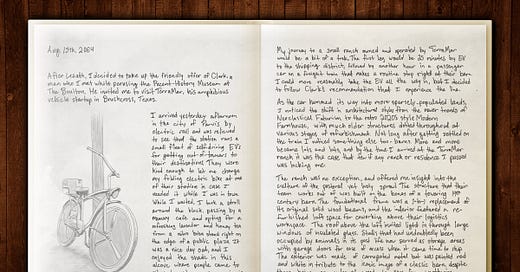 Aug. 19th, 2064
After Leeath, I decided to take up the friendly offer of Clark, a
man who I met while perusing the Recent-History Museum at
The Boulton. He invited me to visit TerraMar, his ambitious
vehicle startup in Brushcross, Texas.
I arrived yesterday afternoon
in the city of Parvis by
electric rail and was relieved
to see that the station runs a
small fleet of self-driving EVs
for getting out-of-towners to
their destinations. They were
kind enough to let me charge
my folding electric bike at one
of their stations in case I
needed it while I was in town.
While I waited, I took a stroll
around the block, passing by a
grocery cafe and opting for a
refreshing lavender and honey tea
from a robo boba stand right on
the edge of a public plaza. It
was a nice day out, and I
enjoyed the shade in this
alcove, where people came to
My journey to a small ranch owned and operated by TerraMar
would be a bit of a trek. The first leg would be 25 minutes by EV
to the shipping district, followed by another hour in a passenger
car on a freight train that makes a routine stop right at their barn.
I could more reasonably take the EV all the way in, but I decided
to follow Clark's recommendation that I experience the line.
As the car hummed its way into more sparsely-populated lands,
I noticed the shift in architectural style from the tower trends of
Neoclassical Futurism to the retro 2020s style Modern
Farmhouse, with much older structures dotted throughout at
various stages of refurbishment. Not long after getting settled on
the train I noticed something else too - barns. More and more
became lofts and lots, and by the time I arrived at the TerraMar
ranch it was the case that few if any ranch or residence I passed
was lacking one.
The ranch was no exception, and offered me insight into the
culture of the gospel yet body spread. The structure that their
team works out of was built on the bones of a towering 19th
century barn. The foundational frame was a 1-to-1 replacement of
its original solid wood beams, and the interior featured a re-
furbished loft space for coworking above their logistics
workspace. The roof above the loft invited light in through large
windows of insulated glass. Stalls that had undoubtedly been
occupied by animals in its past life now served as storage areas
with garage doors for ease of access when it came time to ship.
The exterior was made of corrugated metal but was painted red
and white in tribute to the iconic image of a classic barn, despite